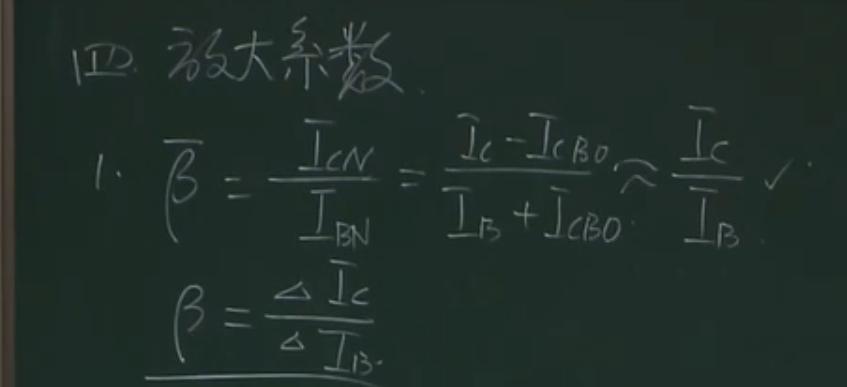 四. 放大系数.
1. β̄ = I_CN / I_BN = (I_C - I_CBO) / (I_B + I_CBO) ≈ I_C / I_B ✓
β = △I_C / △I_B.